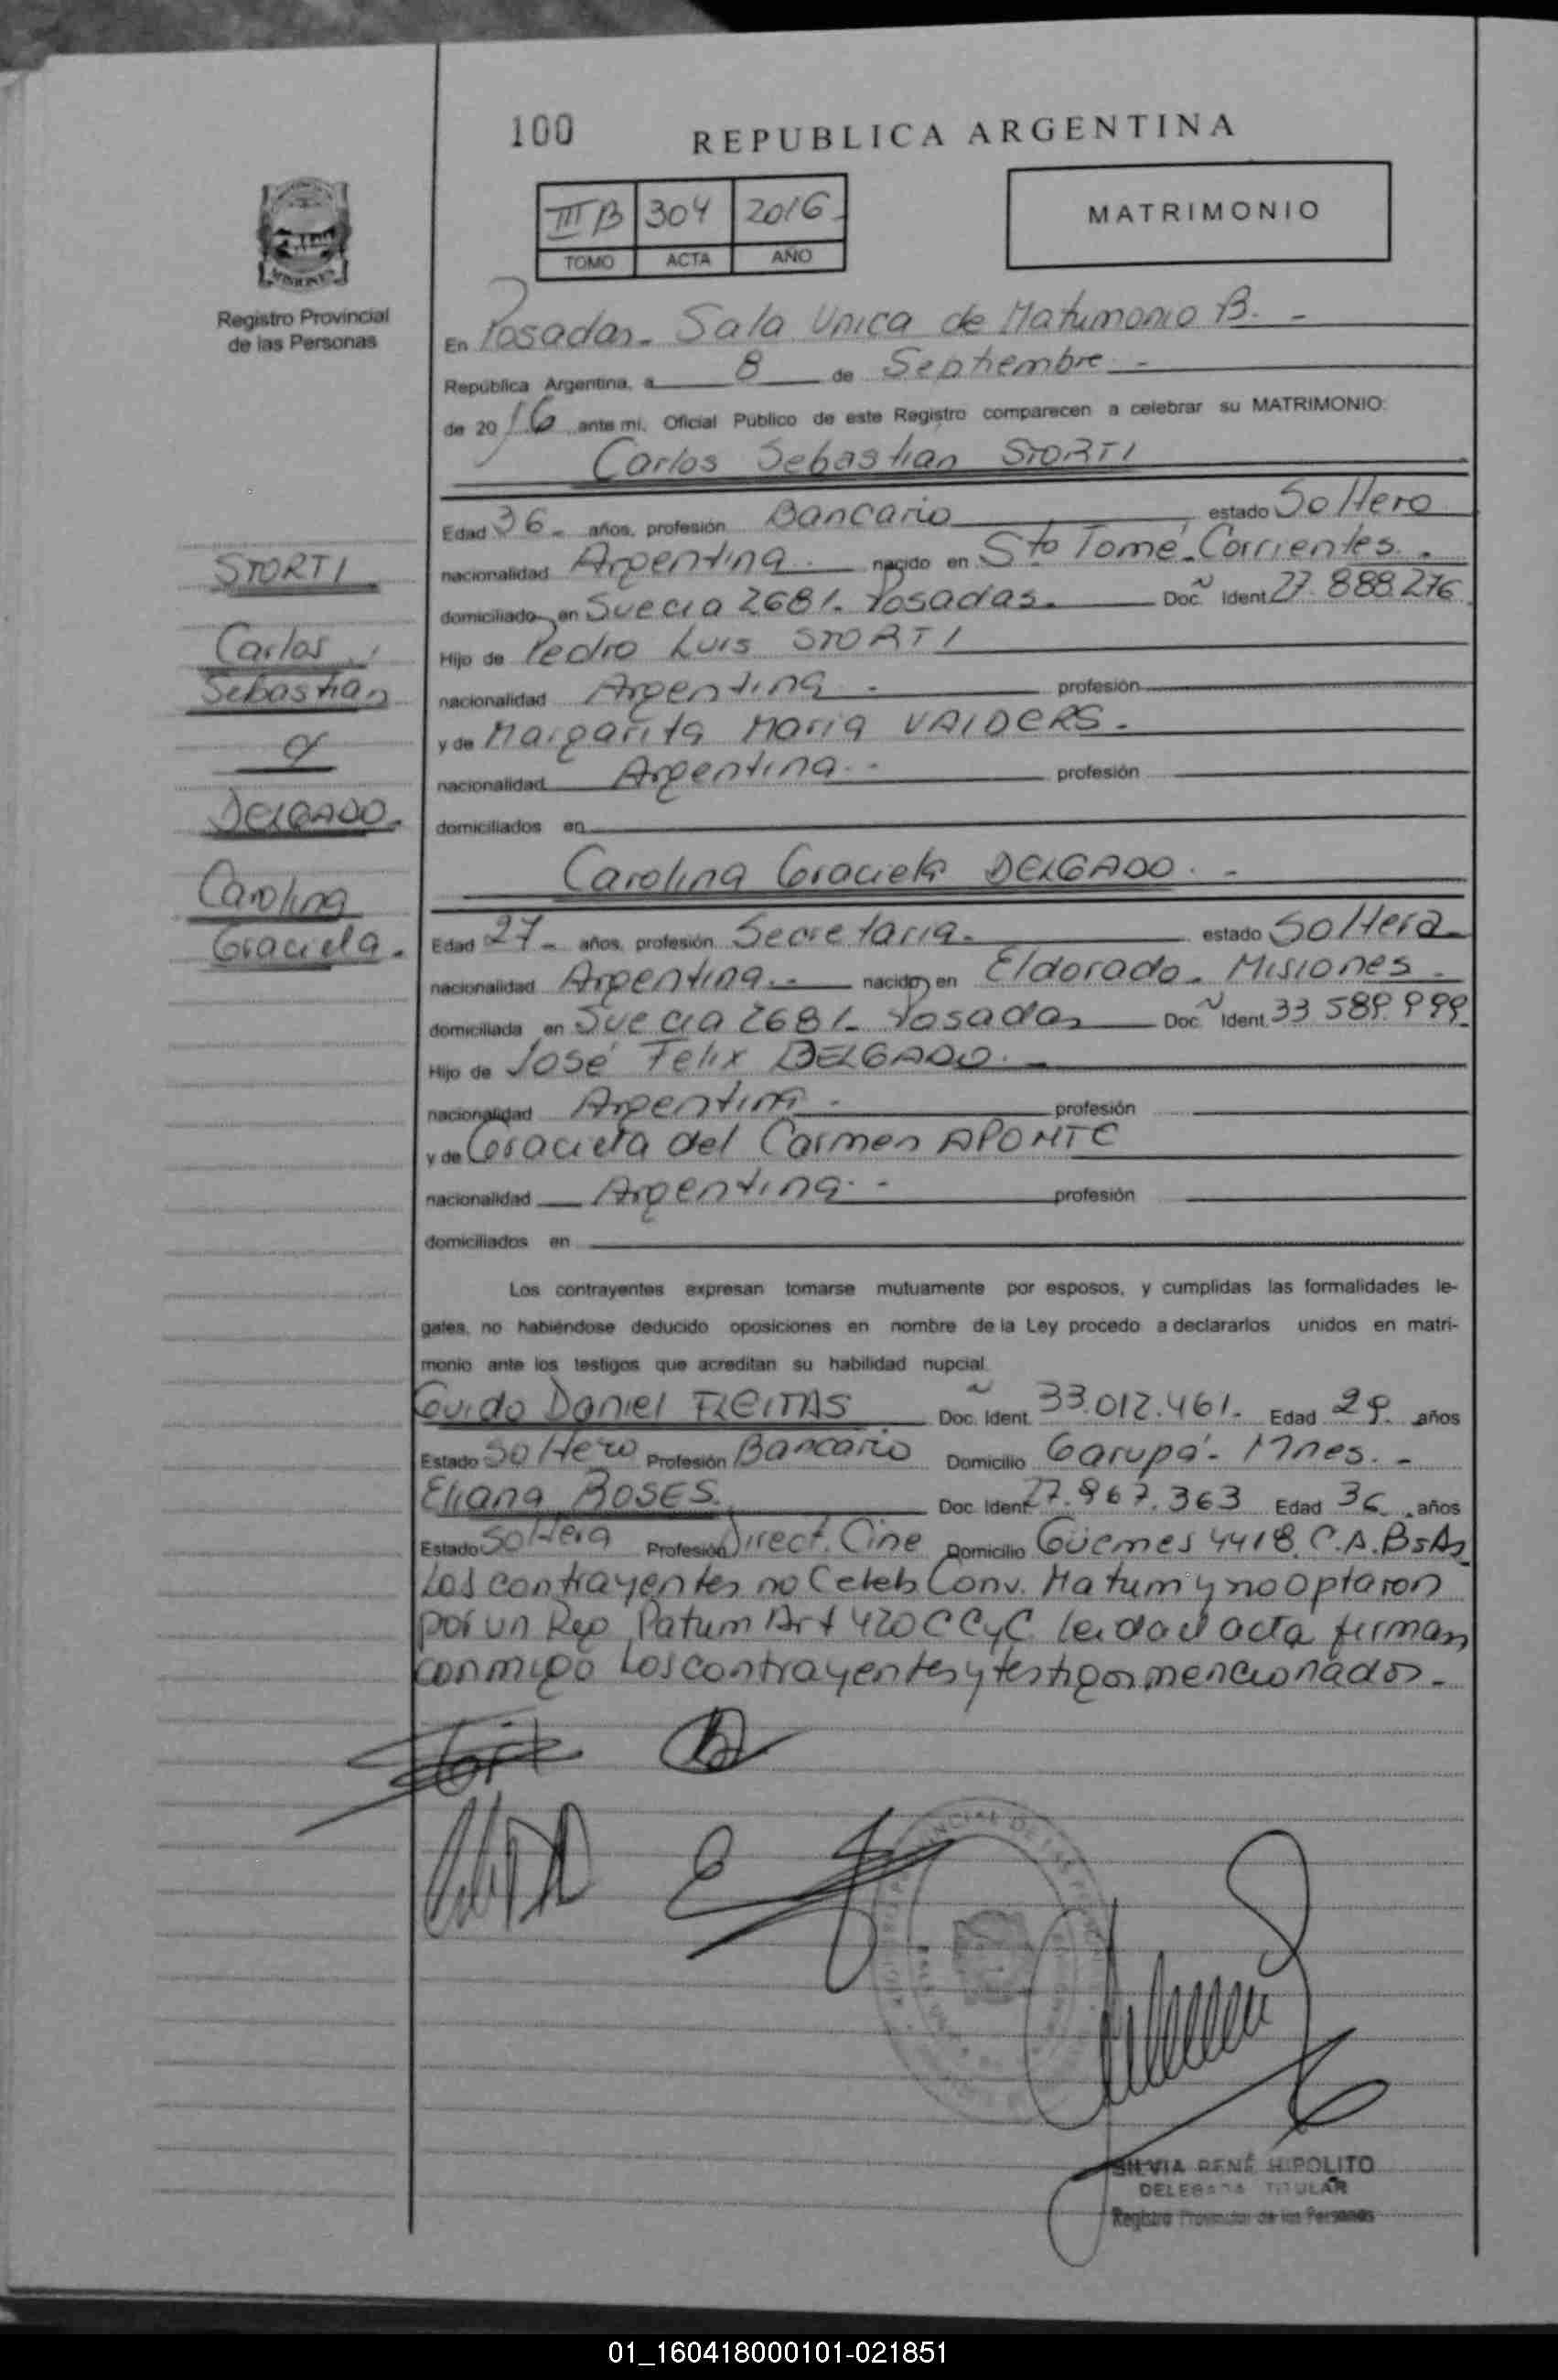 100
REPUBLICA ARGENTINA
III B 304 2016
TOMO ACTA AÑO
MATRIMONIO
Registro Provincial
de las Personas
En Posadas. Sala Unica de Matrimonio B. -
República Argentina, a 8 de Septiembre -
de 2016 ante mí, Oficial Público de este Registro comparecen a celebrar su MATRIMONIO:
Carlos Sebastián STORTI
Edad 36 - años, profesión Bancario estado Soltero
nacionalidad Argentina. nacido en Sto Tomé - Corrientes.
domiciliado en Suecia 2681. Posadas. Doc. Ident 27.888.276
Hijo de Pedro Luis STORTI
nacionalidad Argentina - profesión
y de Margarita Maria VAIDERS.
nacionalidad Argentina. - profesión
domiciliados en
STORTI
Carlos
Sebastian
c/
DELGADO.
Carolina
Graciela.
Carolina Graciela DELGADO. -
Edad 27 - años, profesión Secretaria. estado Soltera
nacionalidad Argentina. - nacido en Eldorado. Misiones.
domiciliada en Suecia 2681. Posadas Doc. Ident. 33.589.999
Hijo de José Felix DELGADO. -
nacionalidad Argentina - profesión
y de Graciela del Carmen APONTE
nacionalidad Argentina. - profesión
domiciliados en
Los contrayentes expresan tomarse mutuamente por esposos, y cumplidas las formalidades le-
gales, no habiéndose deducido oposiciones en nombre de la Ley procedo a declararlos unidos en matri-
monio ante los testigos que acreditan su habilidad nupcial.
Guido Daniel FREITAS Doc. Ident. 33.012.461. Edad 29. años
Estado Soltero Profesión Bancario Domicilio Garupá - Mnes. -
Eliana BOSES. Doc. Ident 27.967.363 Edad 36 años
Estado Soltera Profesión Direct. Cine Domicilio Güemes 4418. C.A. BsAs
Los contrayentes no Celeb Conv. Matrim y no optaron
por un Reg Patrim Art 420 CCyC leida el acta firman
conmigo Los contrayentes y testigos mencionados. -
SILVIA RENÉ HIPOLITO
DELEGADA TITULAR
Registro Provincial de las Personas
01_160418000101-021851